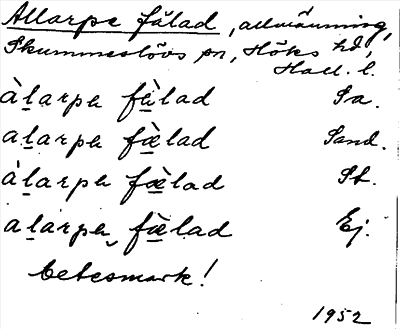 Allarpe fälad, allmänning,
Skummeslövs sn, Höks hd,
Hall. l.
àlarpə fàlad Sa.
alarpə fæ̀lad Sand.
àlarpə fæ̀lad St.
alarpə fæ̀lad Ej.
betesmark!
1952